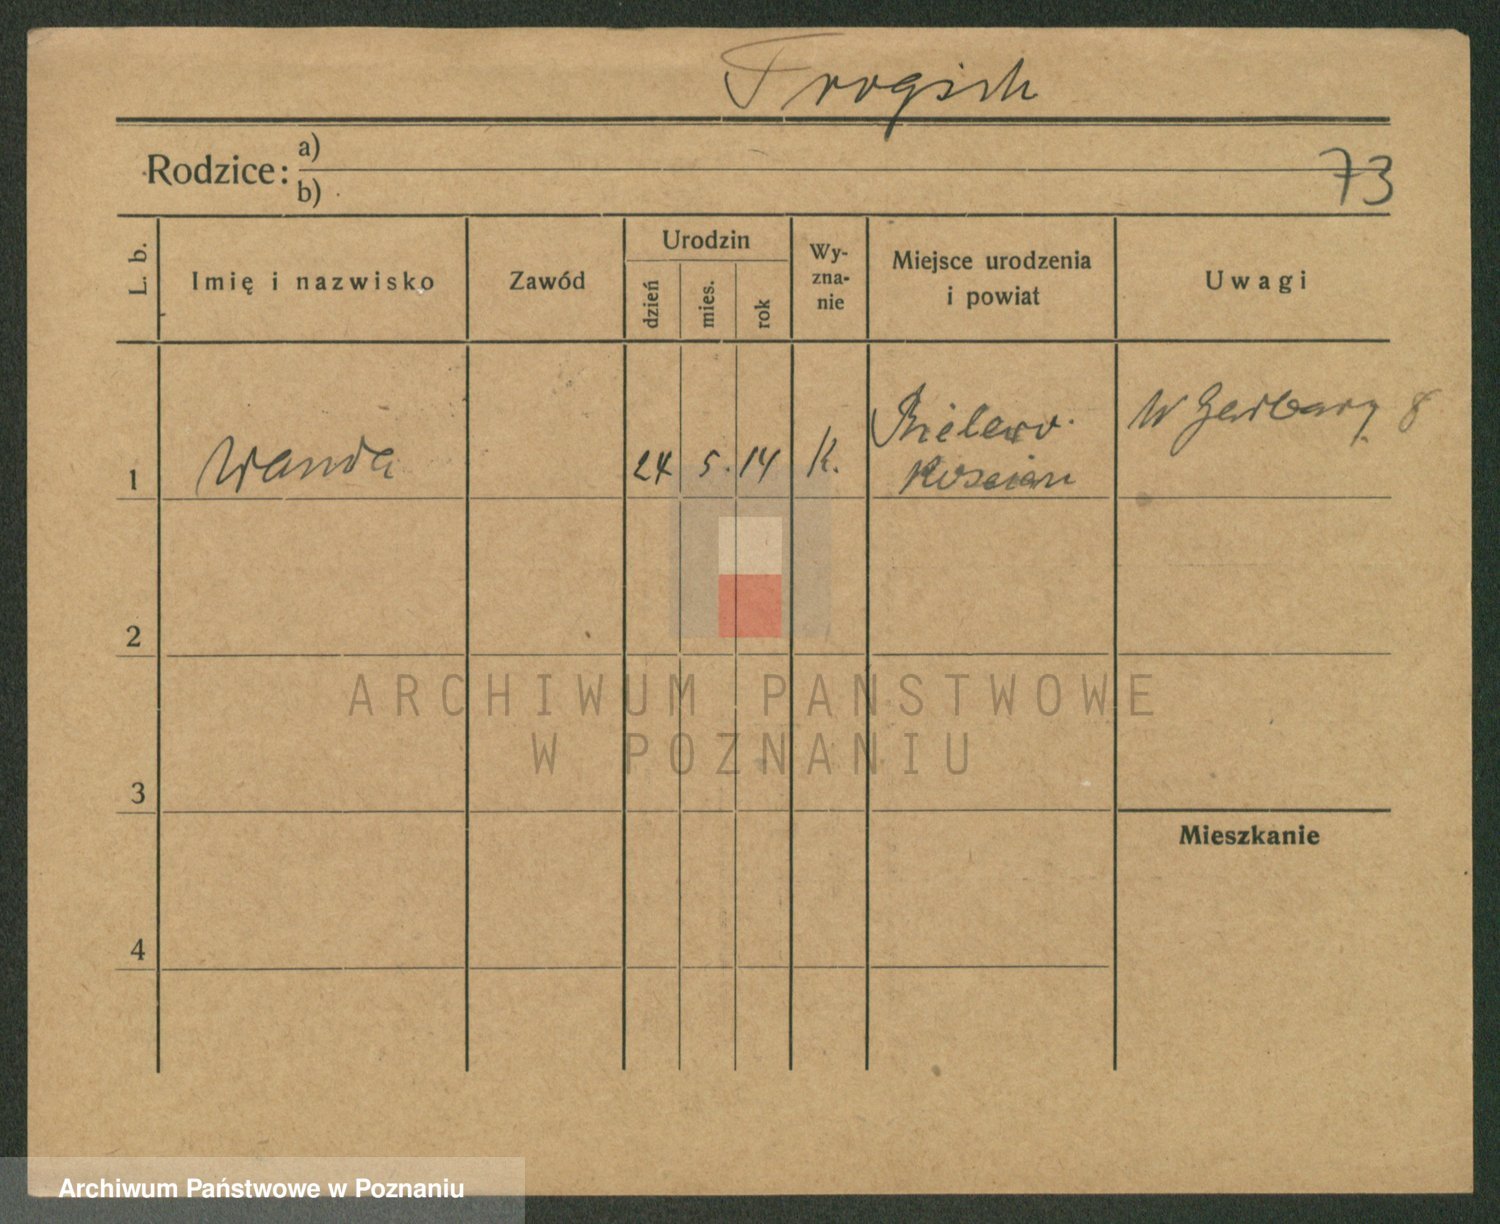 Frogisch
Rodzice: a)
b)
73
L. b.
Imię i nazwisko
Zawód
Urodzin
dzień
mies.
rok
Wy-
zna-
nie
Miejsce urodzenia
i powiat
Uwagi
1
Wanda
24
5.
14
K.
Kościan
W Garbary 8
2
3
4
Mieszkanie
ARCHIWUM PAŃSTWOWE
W POZNANIU
Archiwum Państwowe w Poznaniu